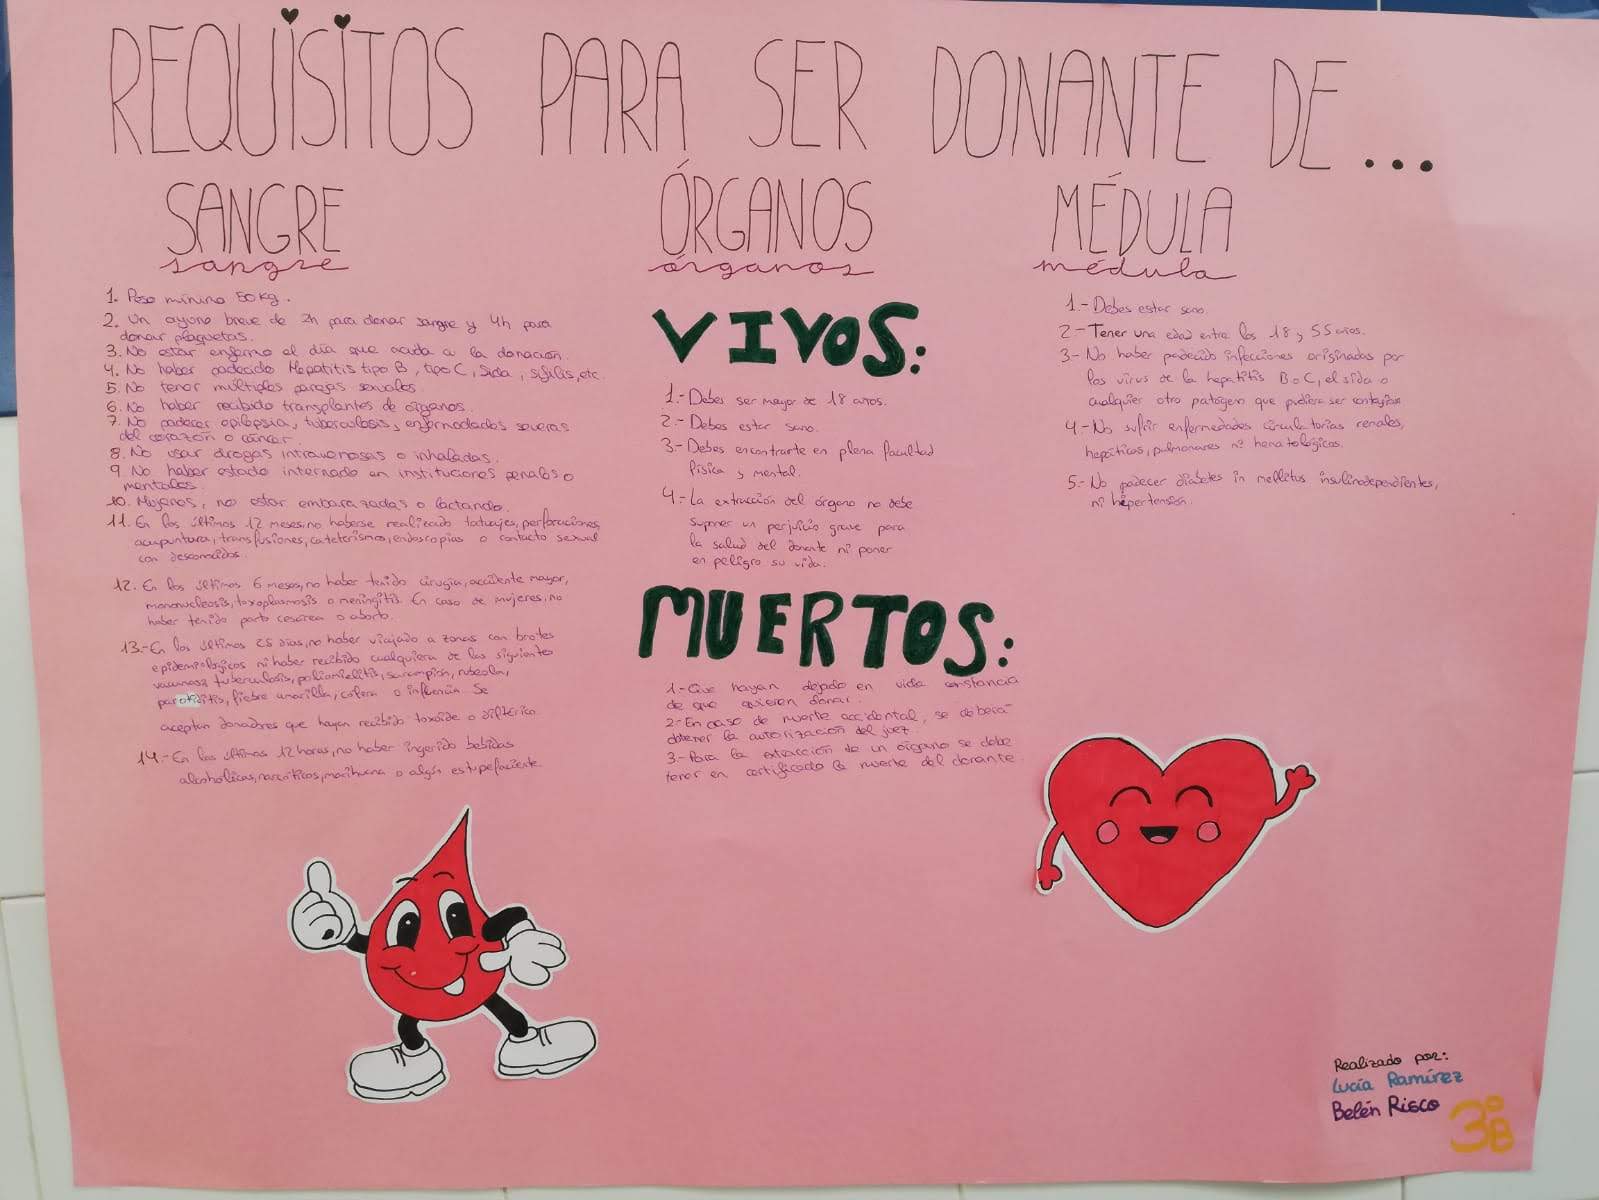 REQUISITOS PARA SER DONANTE DE...
SANGRE
sangre
1. Peso mínimo 50kg.
2. Un ayuno breve de 2h para donar sangre y 4h para
donar plaquetas.
3. No estar enfermo el día que acuda a la donación.
4. No haber padecido Hepatitis tipo B, tipo C, Sida, sífilis, etc.
5. No tener múltiples parejas sexuales.
6. No haber recibido transplantes de órganos.
7. No padecer epilepsia, tuberculosis, enfermedades severas
del corazón o cáncer.
8. No usar drogas intravenosas o inhaladas.
9. No haber estado internado en instituciones penales o
mentales.
10. Mujeres, no estar embarazadas o lactando.
11. En los últimos 12 meses, no haberse realizado tatuajes, perforaciones,
acupuntura, transfusiones, cateterismos, endoscopias o contacto sexual
con desconocidos.
12. En los últimos 6 meses, no haber tenido cirugía, accidente mayor,
mononucleosis, toxoplasmosis o meningitis. En caso de mujeres, no
haber tenido parto cesárea o aborto.
13.- En los últimos 25 días, no haber viajado a zonas con brotes
epidemiológicos ni haber recibido cualquiera de las siguientes
vacunas: tuberculosis, poliomielitis, sarampión, rubeola,
parotiditis, fiebre amarilla, cólera o influenza. Se
aceptan donadores que hayan recibido toxoide o diftérico.
14.- En las últimas 12 horas, no haber ingerido bebidas
alcohólicas, narcóticos, marihuana o algún estupefaciente.
ÓRGANOS
órganos
VIVOS:
1.- Debes ser mayor de 18 años.
2.- Debes estar sano.
3.- Debes encontrarte en plena facultad
física y mental.
4.- La extracción del órgano no debe
suponer un perjuicio grave para
la salud del donante ni poner
en peligro su vida.
MUERTOS:
1- Que hayan dejado en vida constancia
de que quieren donar.
2- En caso de muerte accidental, se deberá
obtener la autorización del juez.
3- Para la extracción de un órgano se debe
tener en certificado la muerte del donante.
MÉDULA
médula
1.- Debes estar sano.
2- Tener una edad entre los 18 y 55 años.
3- No haber padecido infecciones originadas por
los virus de la hepatitis B o C, el sida o
cualquier otro patógeno que pudiera ser contagioso
4.- No sufrir enfermedades circulatorias renales,
hepáticos, pulmonares ni hematológicos.
5.- No padecer diabetes in mellitus insulinodependientes,
ni hipertensión.
Realizado por:
Lucía Ramírez
Belén Risco
3ºB